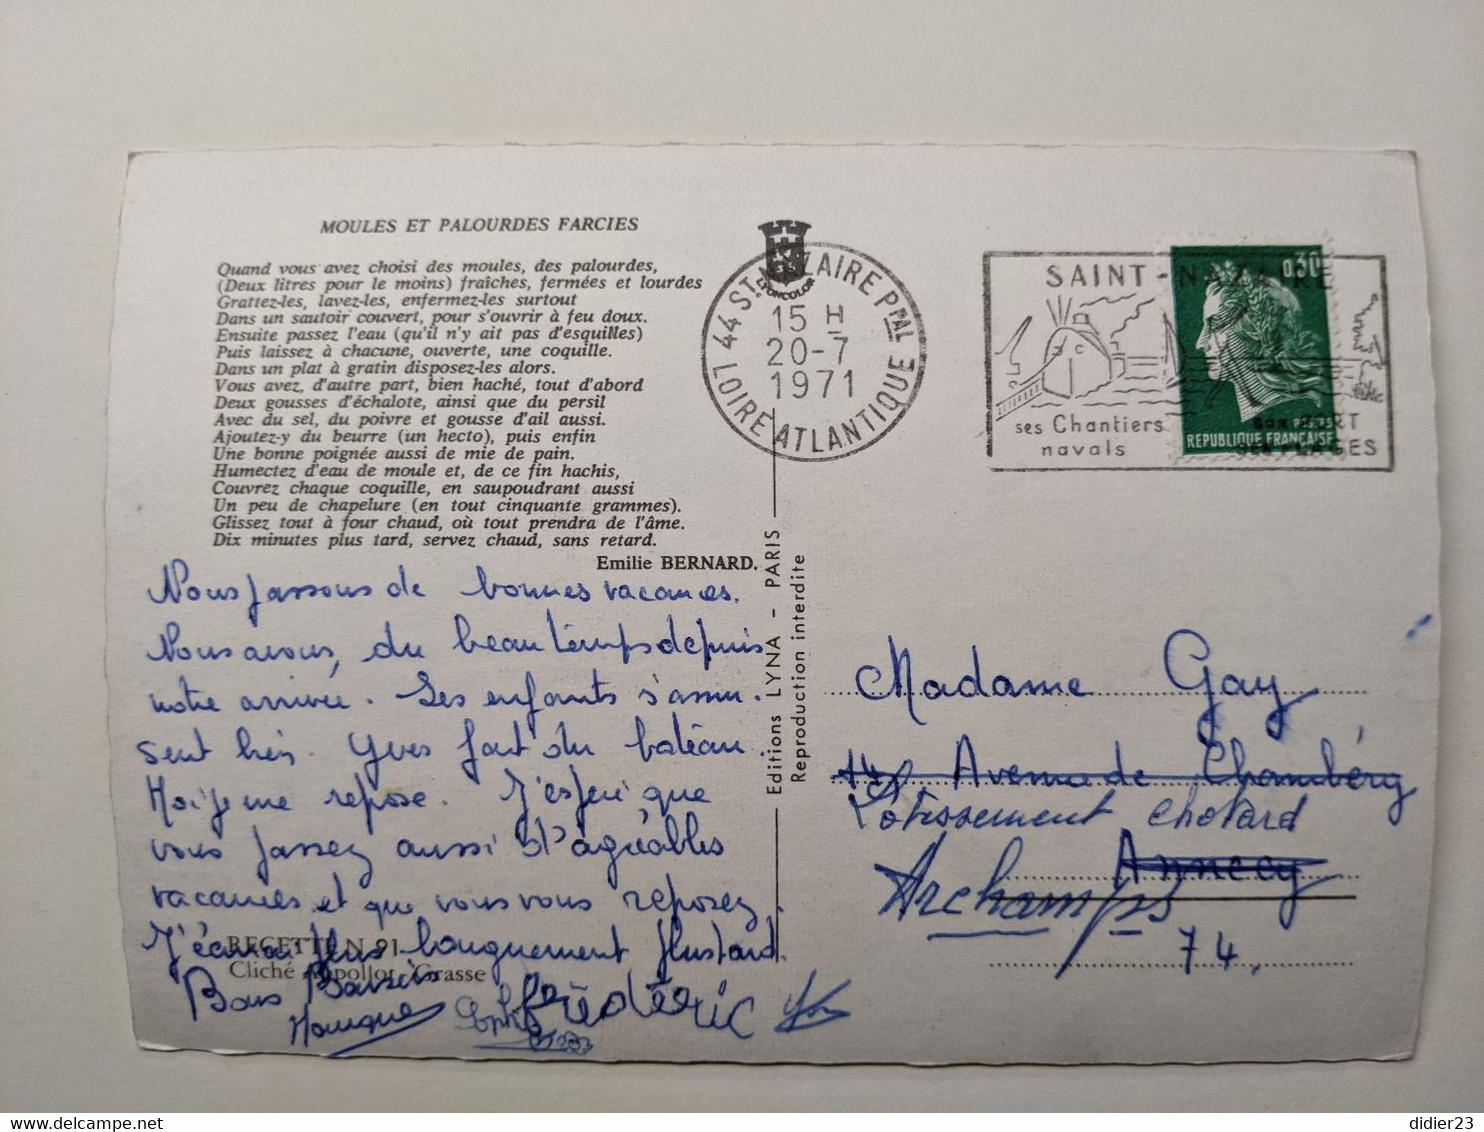 MOULES ET PALOURDES FARCIES
Quand vous avez choisi des moules, des palourdes,
(Deux litres pour le moins) fraîches, fermées et lourdes
Grattez-les, lavez-les, enfermez-les surtout
Dans un sautoir couvert, pour s'ouvrir à feu doux.
Ensuite passez l'eau (qu'il n'y ait pas d'esquilles)
Puis laissez à chacune, ouverte, une coquille.
Dans un plat à gratin disposez-les alors.
Vous avez, d'autre part, bien haché, tout d'abord
Deux gousses d'échalote, ainsi que du persil
Avec du sel, du poivre et gousse d'ail aussi.
Ajoutez-y du beurre (un hecto), puis enfin
Une bonne poignée aussi de mie de pain.
Humectez d'eau de moule et, de ce fin hachis,
Couvrez chaque coquille, en saupoudrant aussi
Un peu de chapelure (en tout cinquante grammes).
Glissez tout à four chaud, où tout prendra de l'âme.
Dix minutes plus tard, servez chaud, sans retard.
Emilie BERNARD.
Nous passons de bonnes vacances.
Nous avons, du beau temps depuis
notre arrivée. Les enfants s'amu-
sent bien. Yves fait du bateau.
Moi je me repose. J'espère que
vous passez aussi d'agréables
vacances et que vous vous reposez.
J'écrirai plus longuement plus tard.
RECETTE N 91
Cliché Appollot, Grasse
Bons Baisers
Monique Sophie Frédéric Yves
Editions LYNA - PARIS
Reproduction interdite
LYONCOLOR
44 ST NAZAIRE Pal
15 H
20-7
1971
LOIRE ATLANTIQUE
SAINT-NAZAIRE
ses Chantiers
navals
SON PORT
SES PLAGES
0,30
POSTES
REPUBLIQUE FRANÇAISE
Madame Gay
14, Avenue de Chambéry
Lotissement Chotard
Annecy
Archamps
74.
didier23